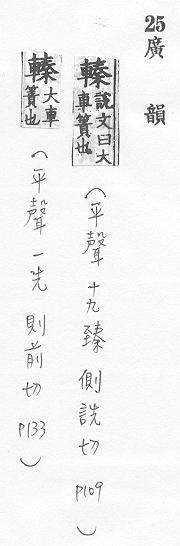 25 廣韻
轃 說文曰大車簀也 (平聲 十九臻 側詵切 P109)
轃 大車簀也 (平聲 一先 則前切 P133)